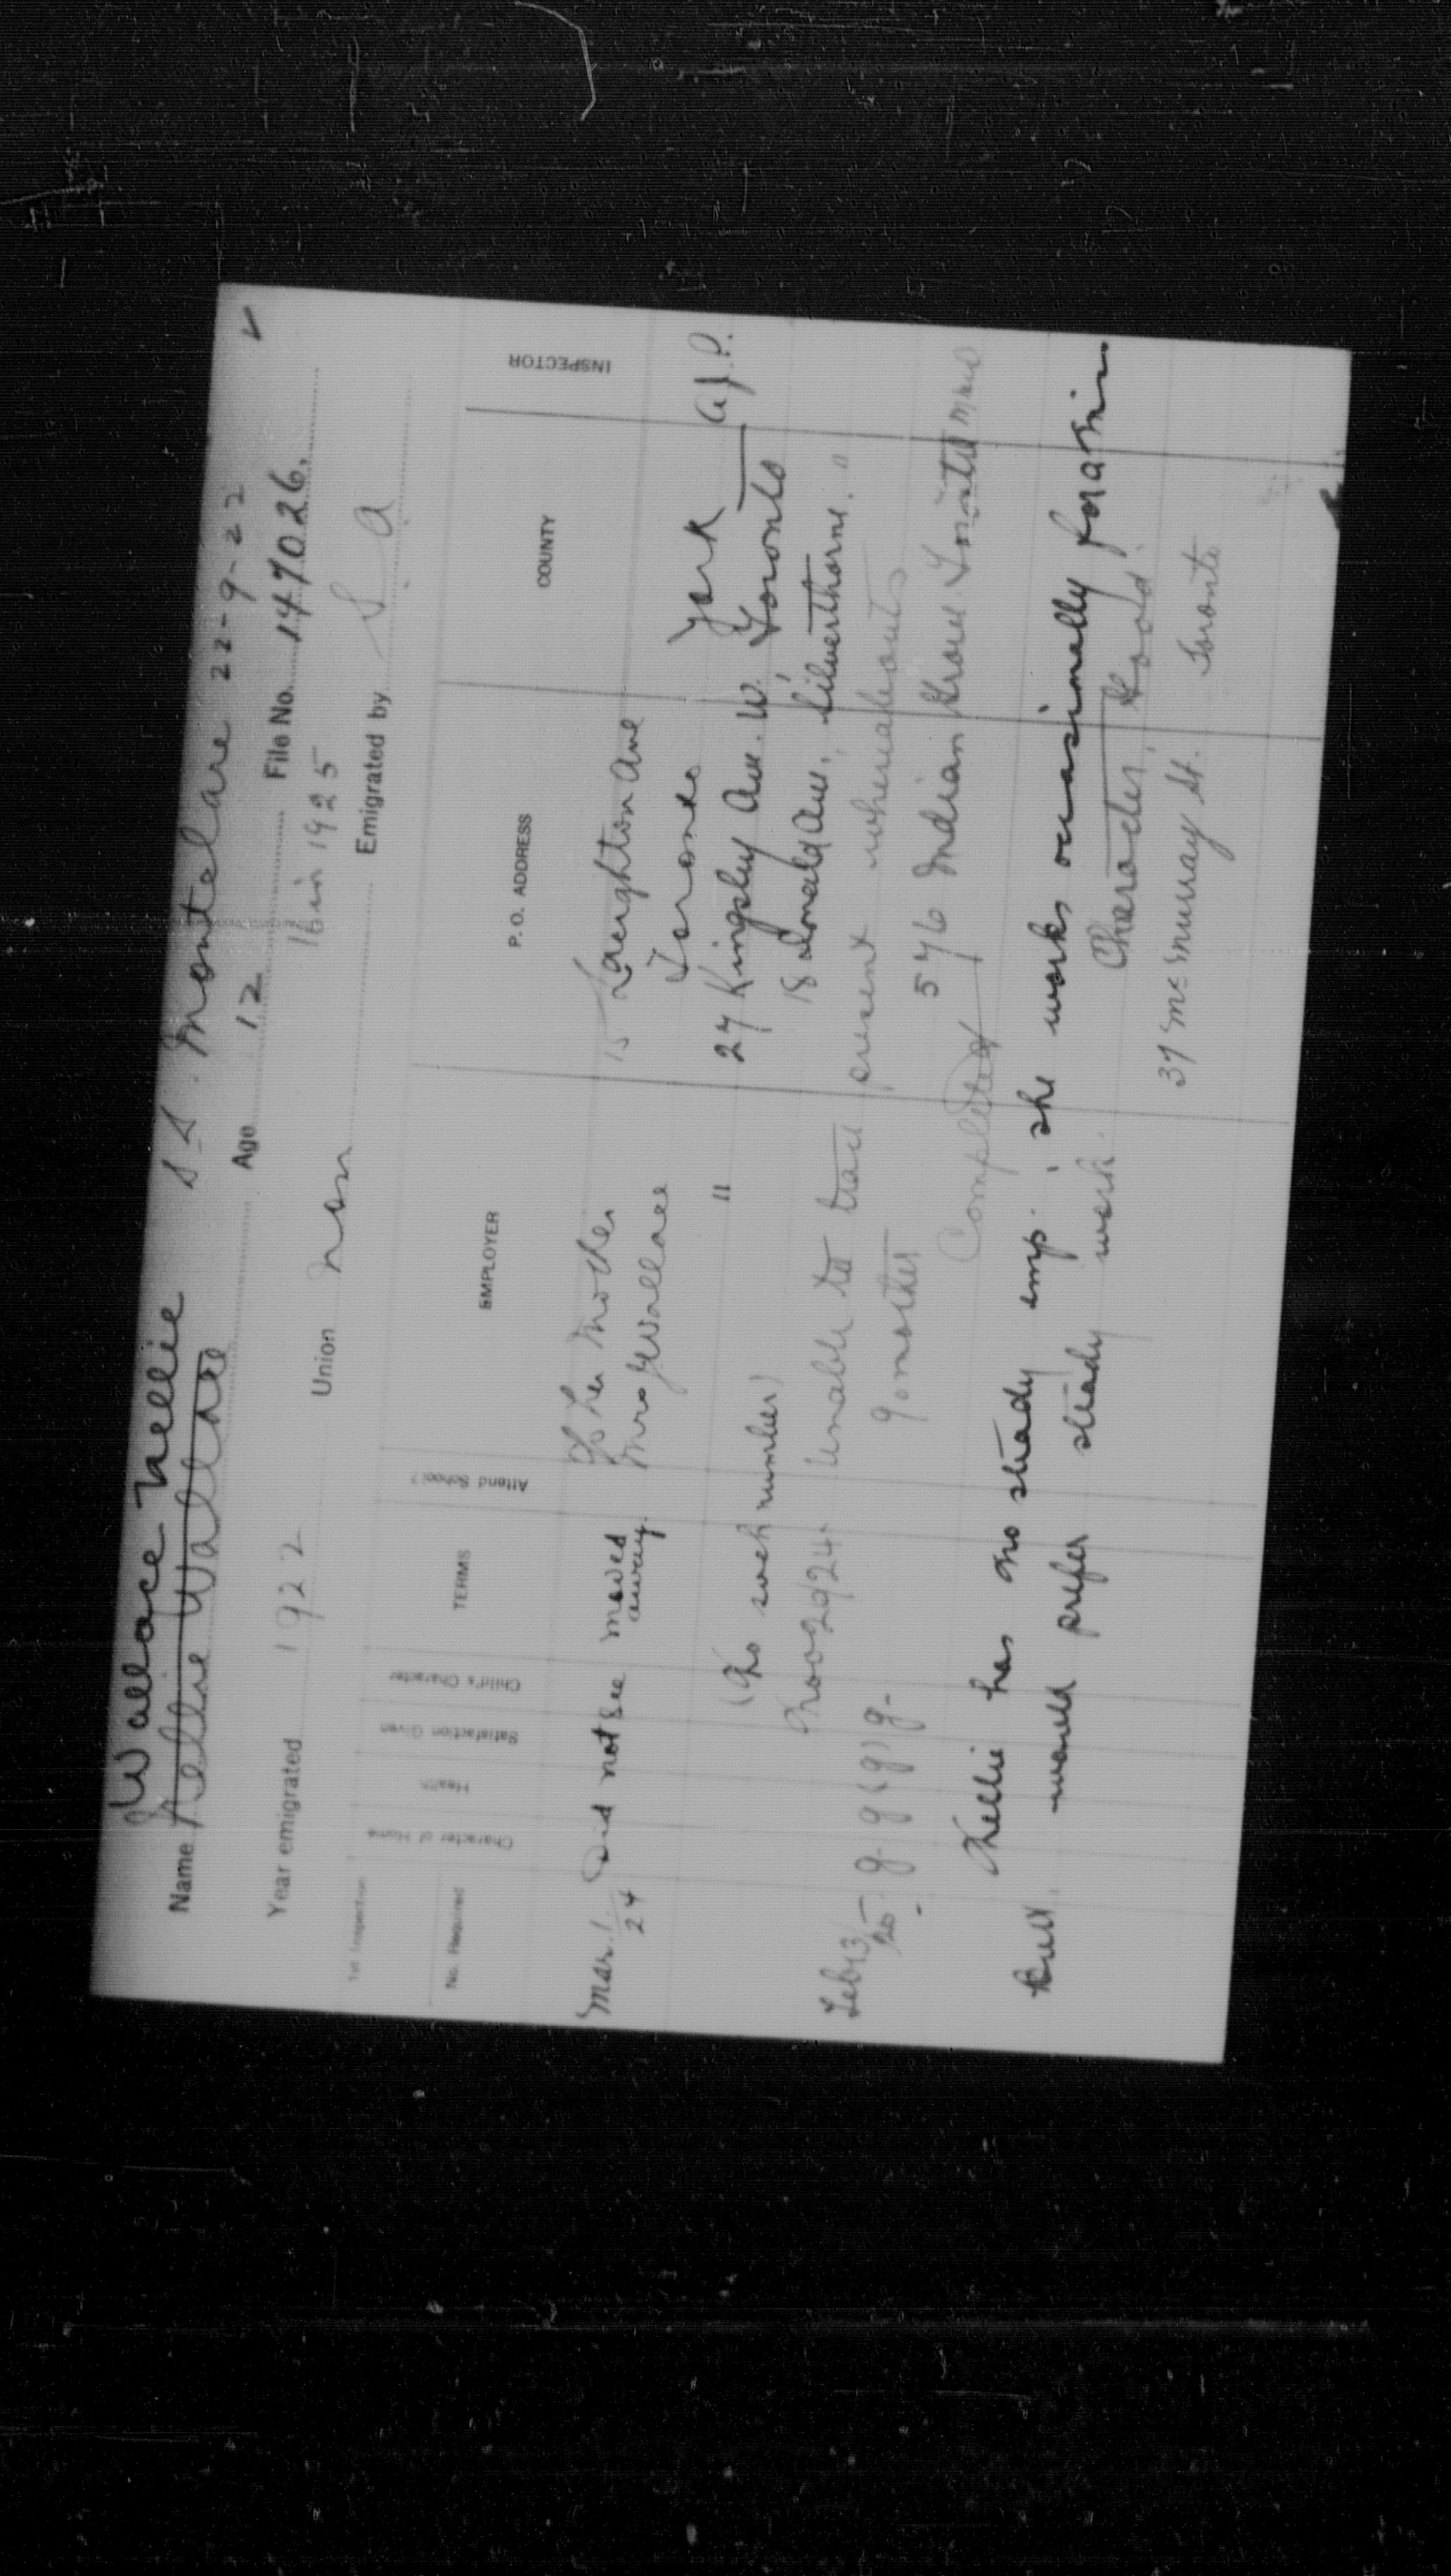 Wallace Nellie S.S. Montclare 22-9-22
Name Nellie Wallace Age 12 File No. 147026.
16 in 1925
Year emigrated 1922 Union non Emigrated by S. A.
1st Inspection
No. Required Character of Home Health Satisfaction Given Child's Character TERMS Attend School? EMPLOYER P. O. ADDRESS COUNTY INSPECTOR
Mar. 1/24 Did not see moved away. To her Mother 15 Laughton Ave
Mrs Wallace Toronto York
" 27 Kingsley Ave. W. Toronto A.J.P.
(No such number) 18 Donald Ave., Silverthorne. "
Nov 29/24 Unable to trace present whereabouts
Feb 13/25 g g (g) g. Go mother 576 Indian Grove. Toronto
Completed
Nellie has no steady emp. ; she works occasionally for a Mrs
would prefer steady work. Character, Good.
37 McMurray St. Toronto